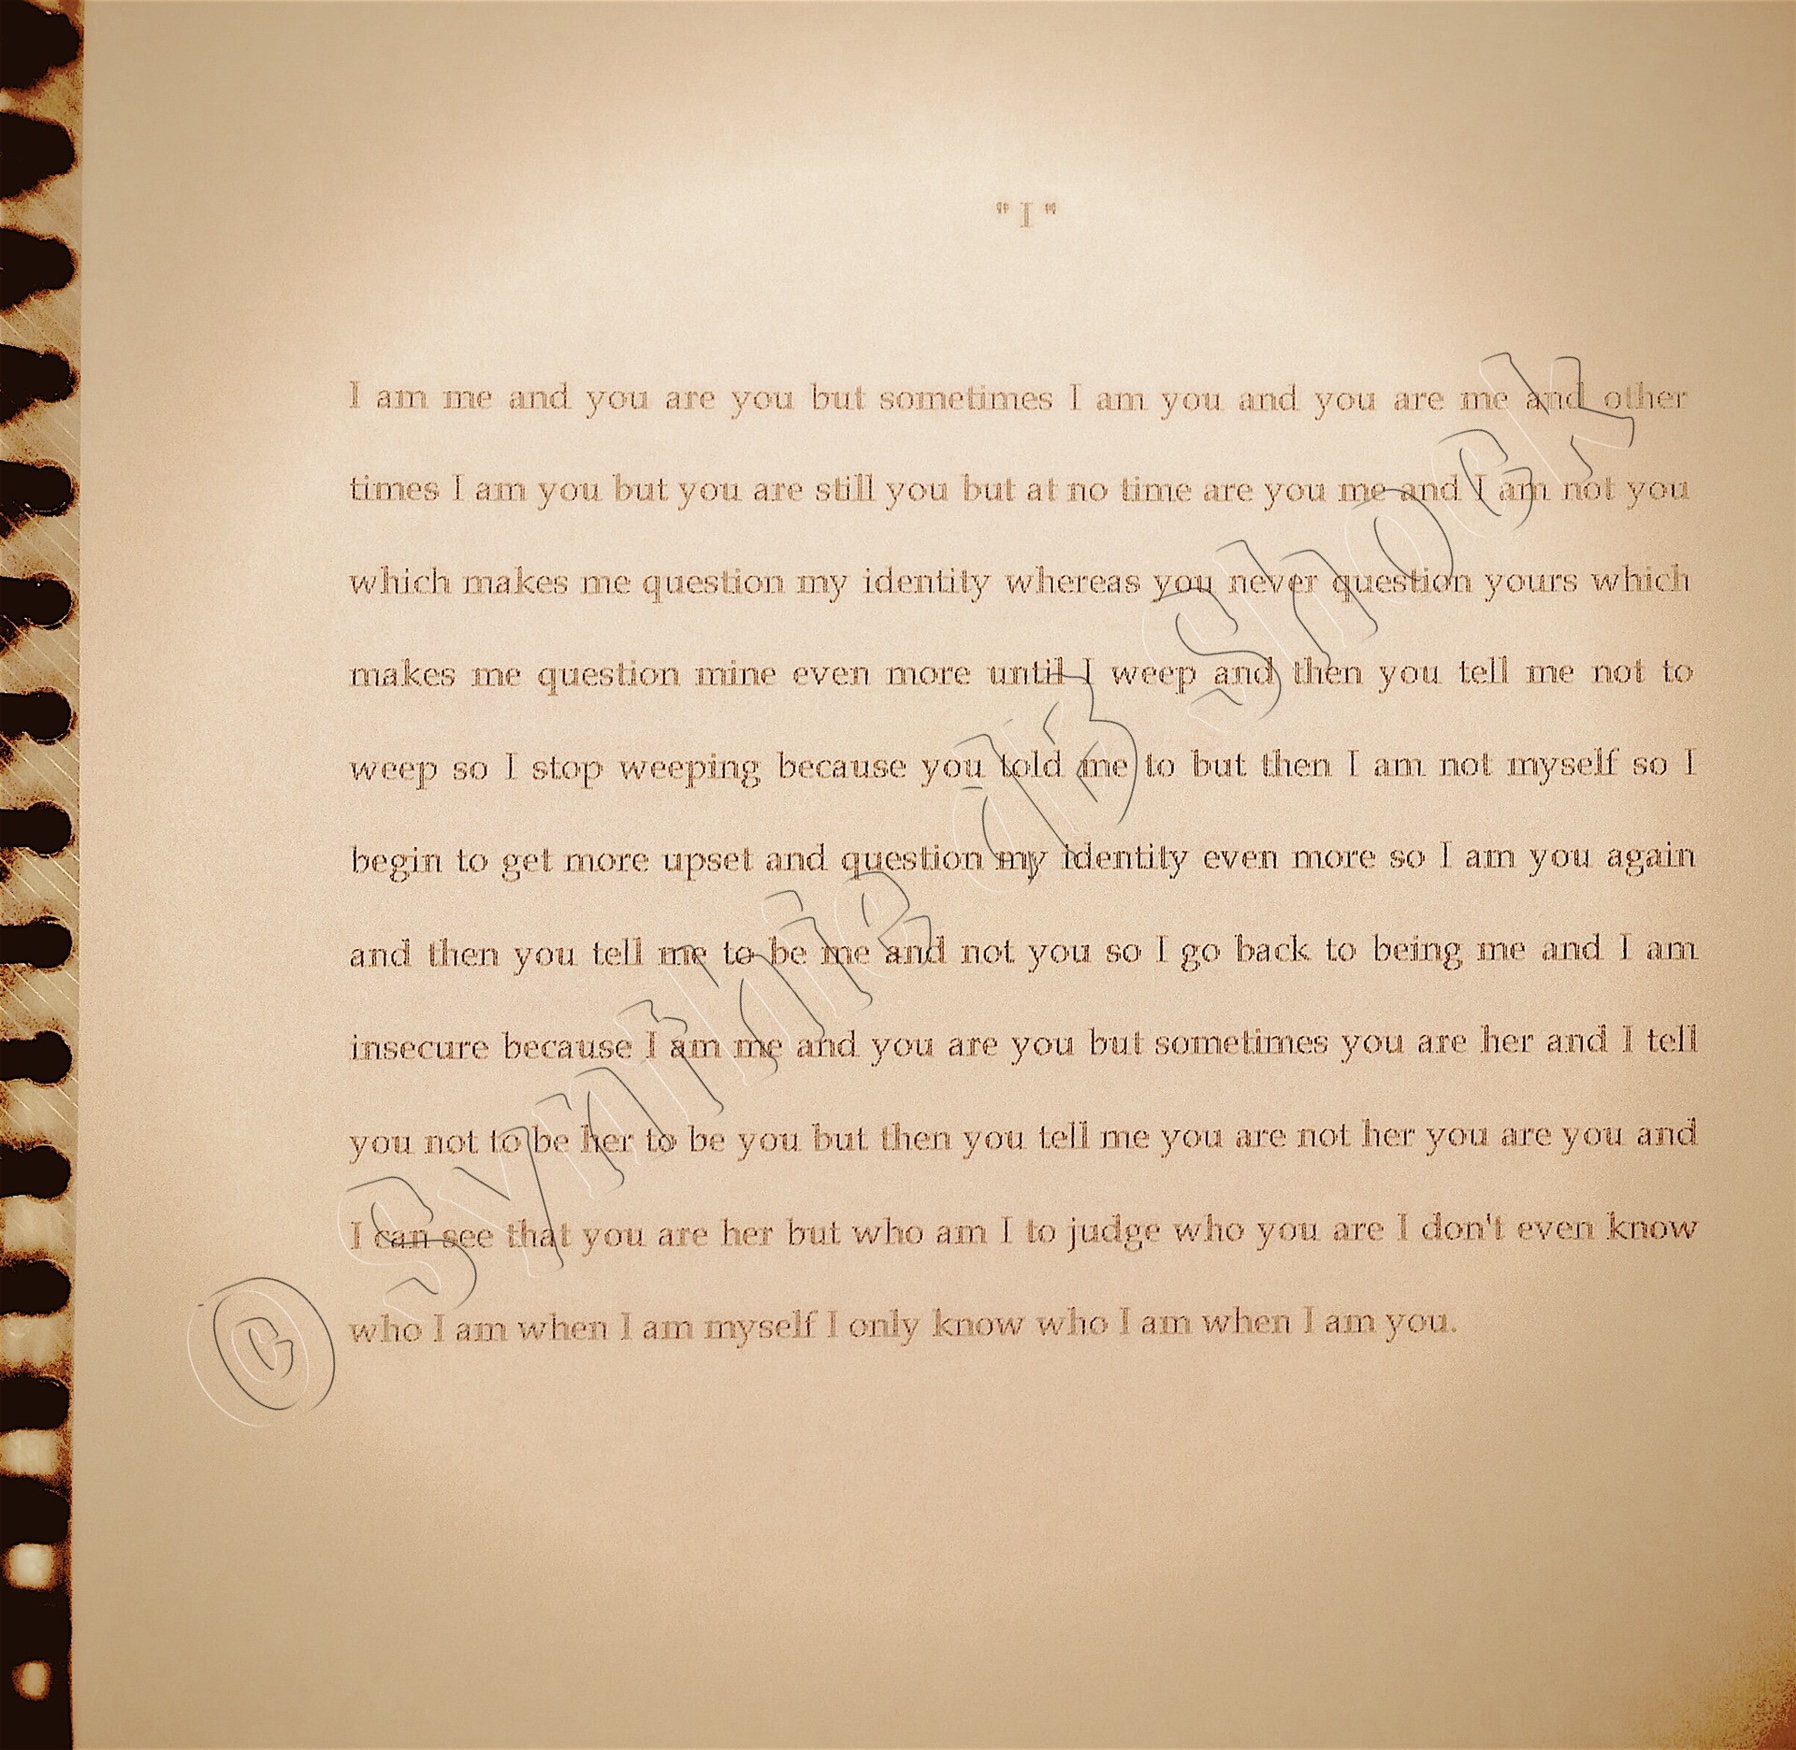 "I"
I am me and you are you but sometimes I am you and you are me and other
times I am you but you are still you but at no time are you me and I am not you
which makes me question my identity whereas you never question yours which
makes me question mine even more until I weep and then you tell me not to
weep so I stop weeping because you told me to but then I am not myself so I
begin to get more upset and question my identity even more so I am you again
and then you tell me to be me and not you so I go back to being me and I am
insecure because I am me and you are you but sometimes you are her and I tell
you not to be her to be you but then you tell me you are not her you are you and
I can see that you are her but who am I to judge who you are I don't even know
who I am when I am myself I only know who I am when I am you.
© Shock